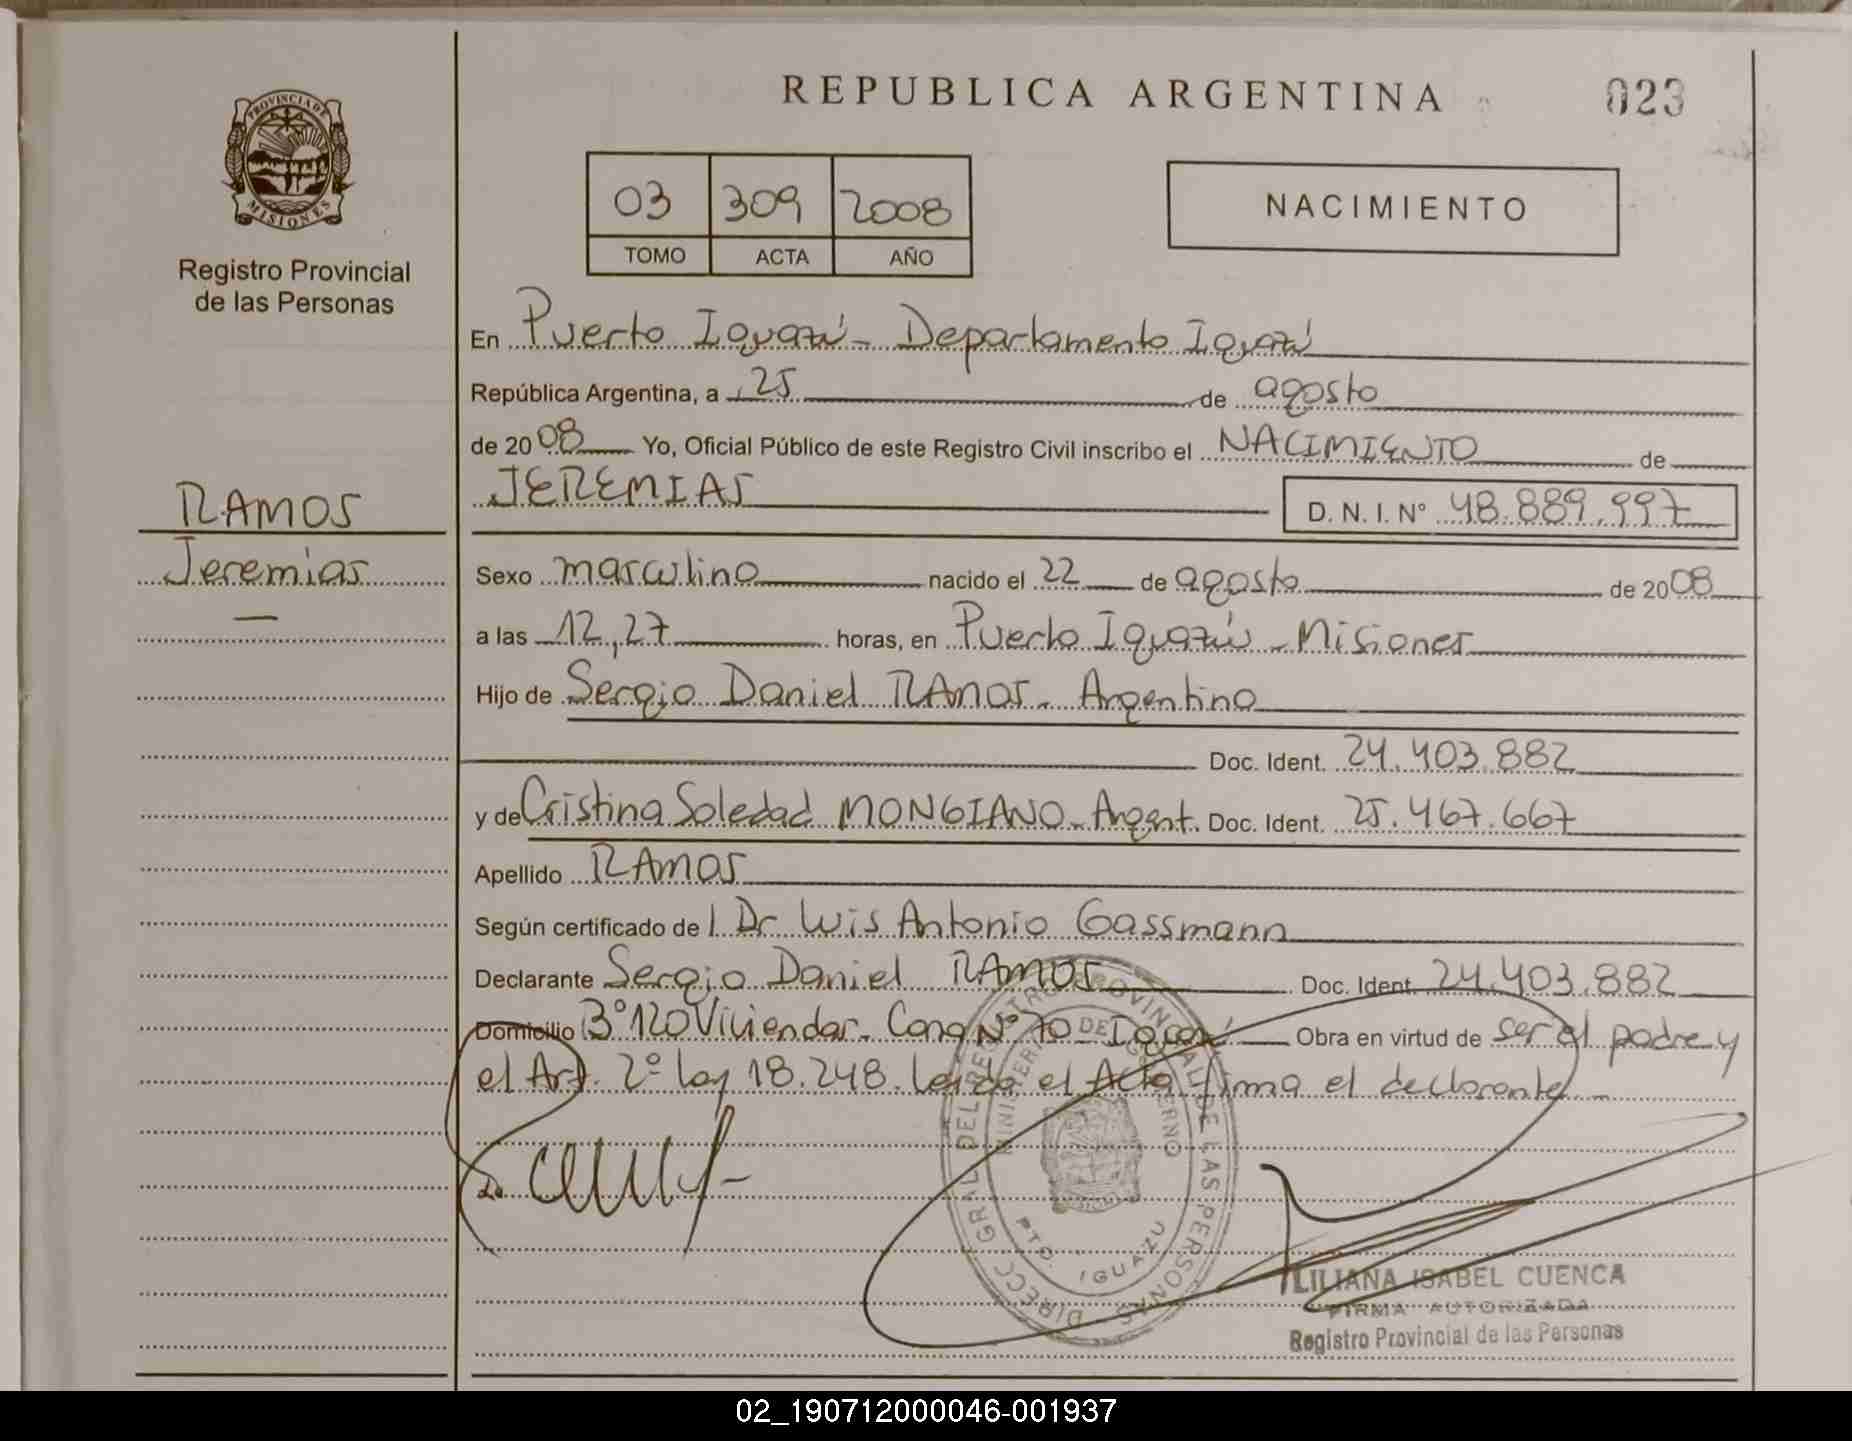 REPUBLICA ARGENTINA
023
PROVINCIA DE
MISIONES
Registro Provincial
de las Personas
03 309 2008
TOMO ACTA AÑO
NACIMIENTO
En Puerto Iguazú - Departamento Iguazú
República Argentina, a 25 de agosto
de 2008 Yo, Oficial Público de este Registro Civil inscribo el NACIMIENTO de
JEREMIAS D. N. I. N° 48.889.997
RAMOS
Jeremías
Sexo masculino nacido el 22 de agosto de 2008
a las 12,27 horas, en Puerto Iguazú - Misiones
Hijo de Sergio Daniel RAMOS - Argentino
Doc. Ident. 24.403.882
y de Cristina Soledad MONGIANO - Argent. Doc. Ident. 25.467.667
Apellido RAMOS
Según certificado de l Dr Luis Antonio Gassmann
Declarante Sergio Daniel RAMOS Doc. Ident. 24.403.882
Domicilio B° 120 Viviendas - Casa N° 70 - Iguazú Obra en virtud de ser el padre y
el Art. 2° Ley 18.248. Leida el Acta firma el declarante -
DIRECC. GRAL. DEL REGISTRO PROVINCIAL DE LAS PERSONAS
MINISTERIO DE GOBIERNO
PTO. IGUAZU
LILIANA ISABEL CUENCA
FIRMA AUTORIZADA
Registro Provincial de las Personas
02_190712000046-001937